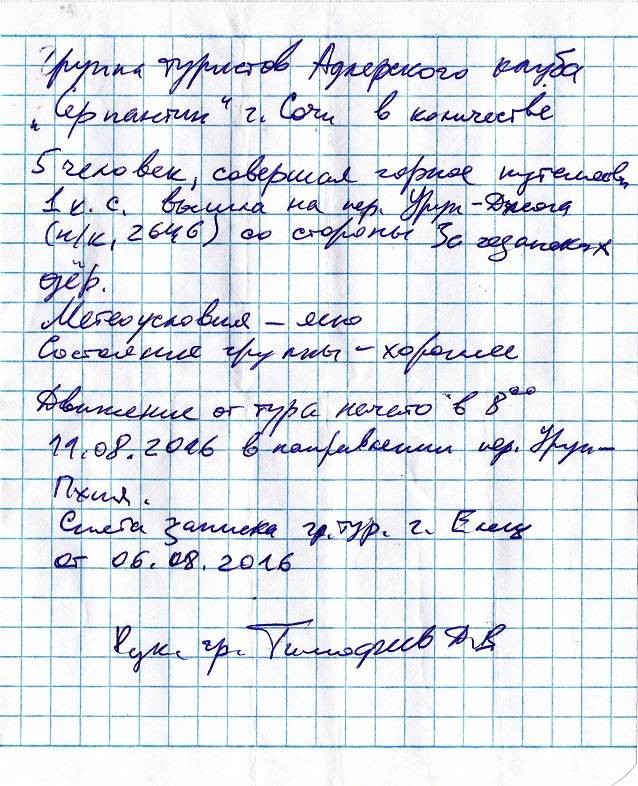 Группа туристов Адлерского клуба
"Серпантин" г. Сочи в количестве
5 человек, совершая горное путешеств
1 к. с. вышла на пер. Уруп-Джога
(н/к, 2646) со стороны Загеданских
озёр.
Метеоусловия – ясно
Состояние группы – хорошее
Движение от тура начато в 8⁰⁰
11.08.2016 в направлении пер. Уруп-
Пхия.
Снята записка гр. тур. г. Елец
от 06.08.2016
Рук. гр. Тимофеев А.В